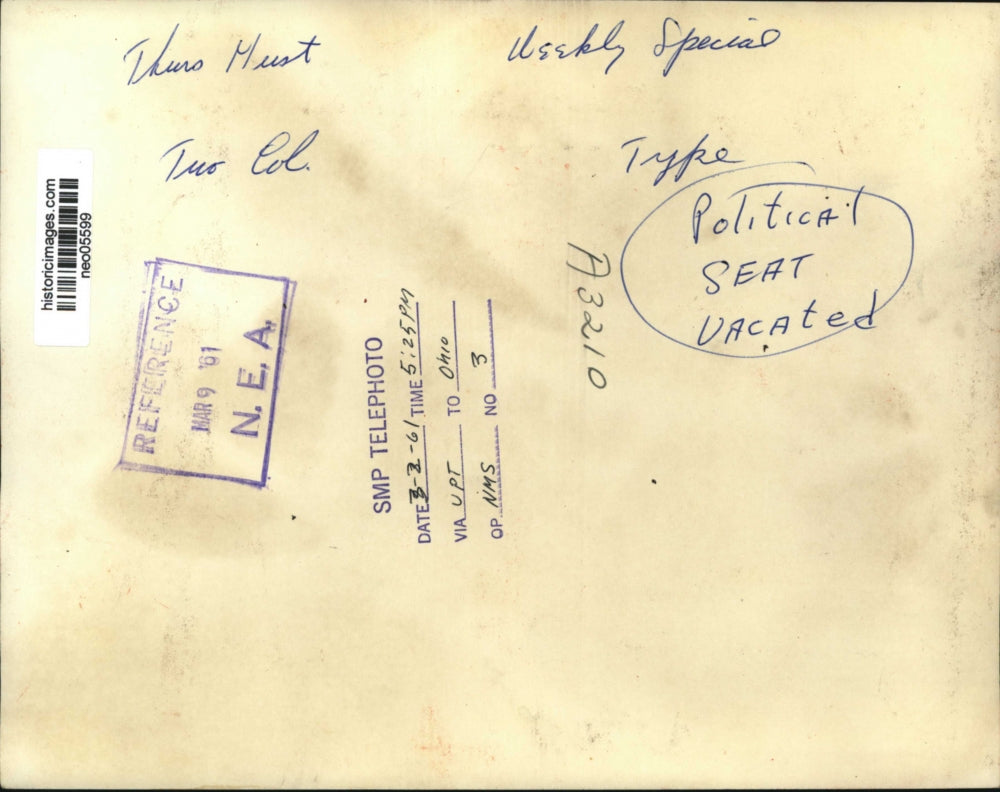 Thurs Must
Weekly Special
Two Col.
Type
Political
SEAT
VACAted
historicimages.com
neo05599
REFERENCE
MAR 9 '61
N. E. A.
SMP TELEPHOTO
DATE 3-2-61 TIME 5:25PM
VIA UPT TO Ohio
OP. NMS NO 3
A3210